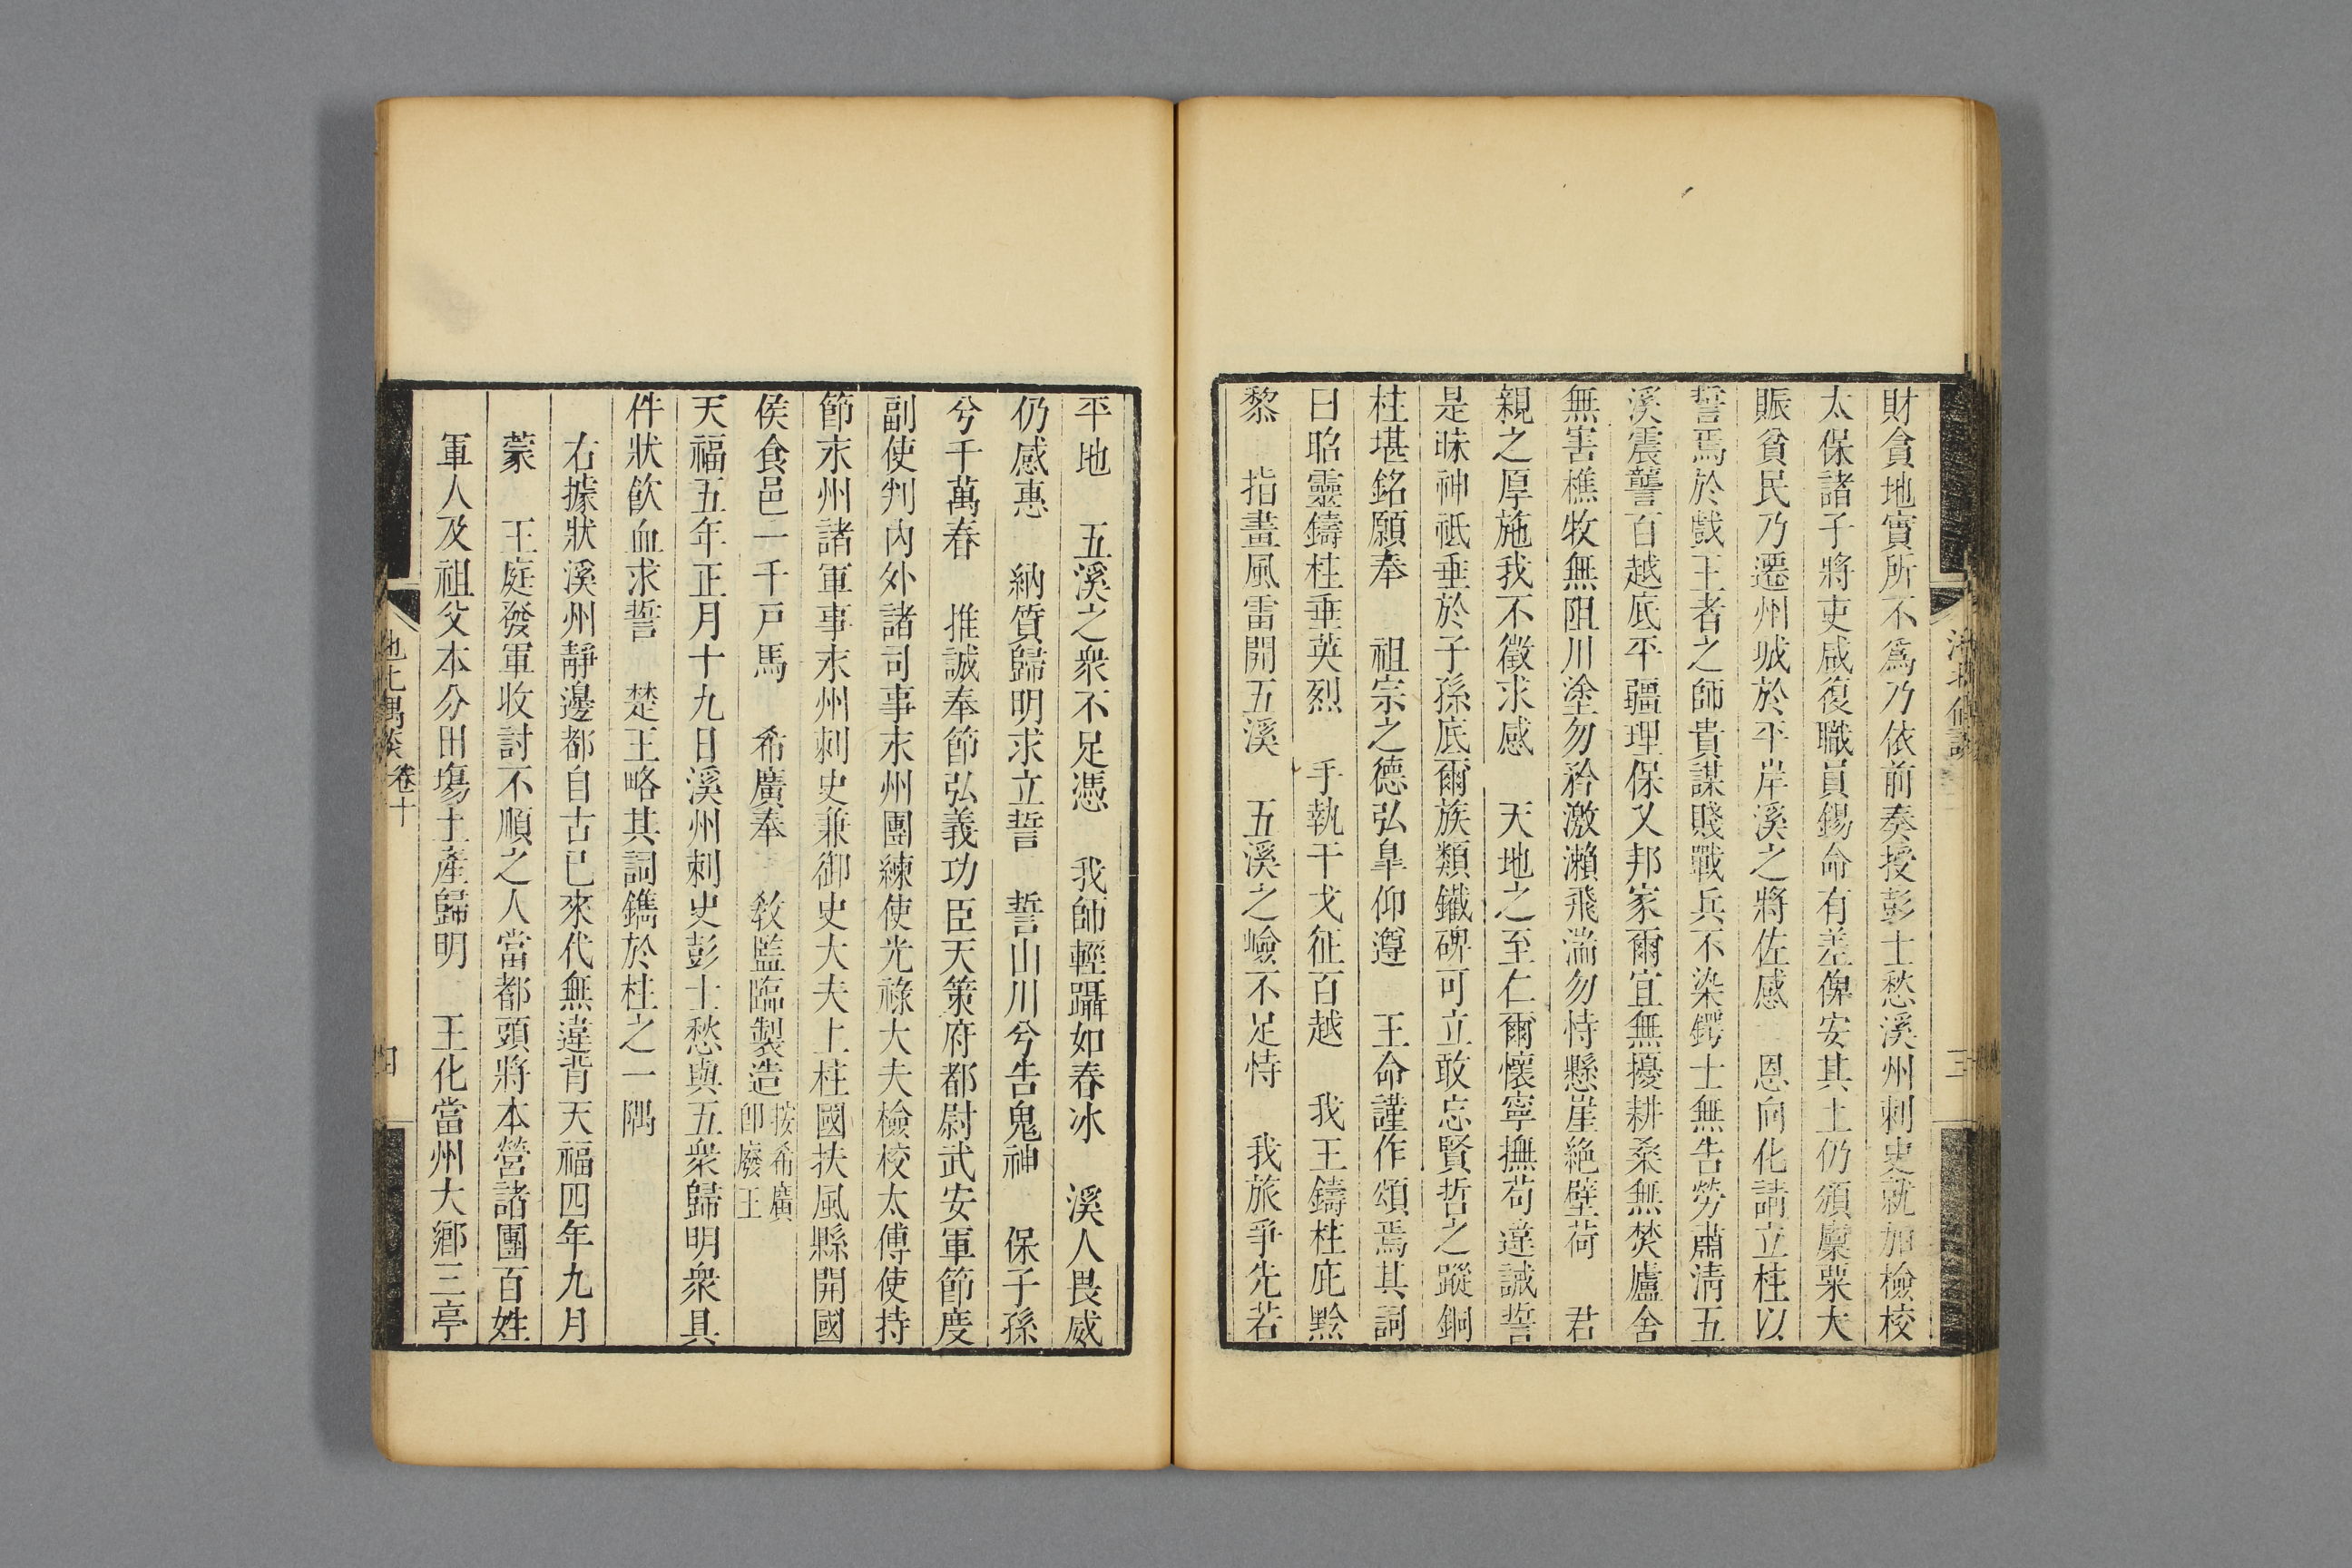 財貪地實所不爲乃依前奏授彭士愁溪州刺史就加檢校
太保諸子將吏咸復職員錫命有差俾安其土仍頒廩粟大
賑貧民乃遷州城於平岸溪之將佐感　恩向化請立柱以
誓焉於戲王者之師貴謀賤戰兵不染鍔士無告勞肅清五
溪震讋百越底平疆理保乂邦家爾宜無擾耕桑無焚廬舍
無害樵牧無阻川塗勿矜激瀨飛湍勿恃懸崖絶壁荷　君
親之厚施我不徵求感　天地之至仁爾懷寧撫苟違誠誓
是昧神祇垂於子孫底爾族類鐵碑可立敢忘賢哲之蹤銅
柱堪銘願奉　祖宗之德弘臯仰遵　王命謹作頌焉其詞
曰昭靈鑄柱垂英烈　手執干戈征百越　我王鑄柱庇黔
黎　指畫風雷開五溪　五溪之嶮不足恃　我旅爭先若
平地　五溪之衆不足憑　我師輕躡如春冰　溪人畏威
仍感惠　納質歸明求立誓　誓山川兮告鬼神　保子孫
兮千萬春　推誠奉節弘義功臣天策府都尉武安軍節度
副使判內外諸司事末州團練使光祿大夫檢校太傅使持
節末州諸軍事末州刺史兼御史大夫上柱國扶風縣開國
侯食邑一千戸馬　希廣奉　敎監臨製造按希廣
卽廢王
天福五年正月十九日溪州刺史彭士愁與五衆歸明衆具
件狀飮血求誓　楚王略其詞鐫於柱之一隅
右據狀溪州靜邊都自古已來代無違背天福四年九月
蒙　王庭發軍收討不順之人當都頭將本營諸團百姓
軍人及祖父本分田塲土產歸明　王化當州大鄉三亭
卷十
三
四